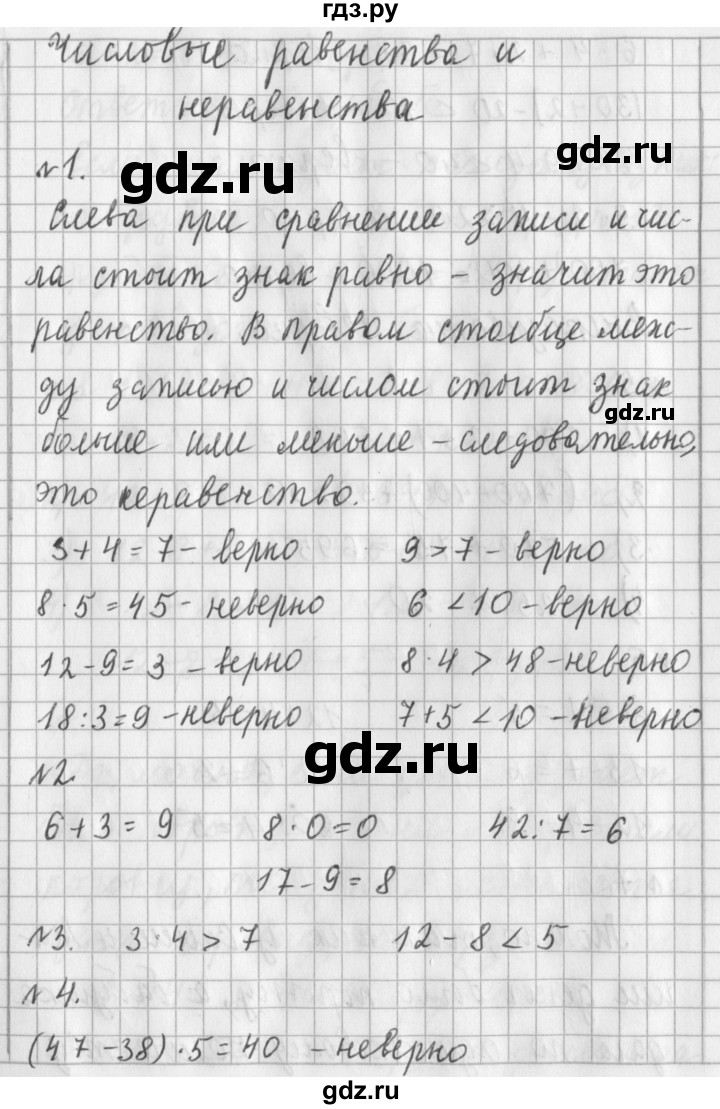 гдз.ру
Числовые равенства и
неравенства
gdz.ru
№1.
gdz.ru
Слева при сравнении записи и чис-
ла стоит знак равно – значит это
равенство. В правом столбце меж-
ду записью и числом стоит знак
gdz.ru
больше или меньше – следовательно,
это неравенство.
3 + 4 = 7 – верно 9 > 7 – верно
8 · 5 = 45 – неверно 6 < 10 – верно
12 - 9 = 3 – верно 8 · 4 > 48 – неверно
18 : 3 = 9 – неверно 7 + 5 < 10 – неверно
gdz.ru
№2.
6 + 3 = 9 8 · 0 = 0 42 : 7 = 6
17 - 9 = 8
№3. 3 · 4 > 7 12 - 8 < 5
№4.
(47 - 38) · 5 = 40 – неверно
gdz.ru